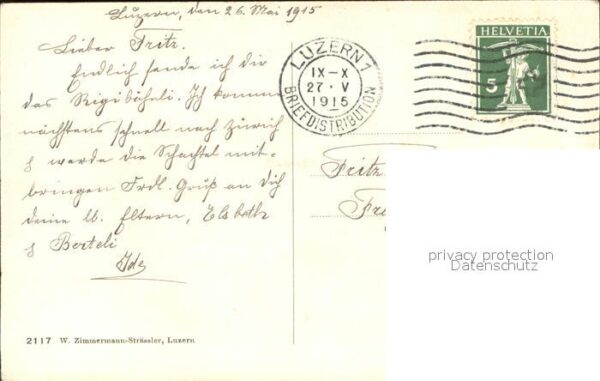 Luzern, den 26. Mai 1915
Lieber Fritz.
Endlich sende ich dir
das Rigibähnli. Ich komme
nächstens schnell nach Zürich
& werde die Schachtel mit-
bringen Frdl. Gruß an Dich
deine lb. Eltern, Elsbeth
& Berteli
Ida
LUZERN 1
IX-X
27. V
1915
BRIEFDISTRIBUTION
HELVETIA
5
Fritz
privacy protection
Datenschutz
2117 W. Zimmermann-Strässler, Luzern